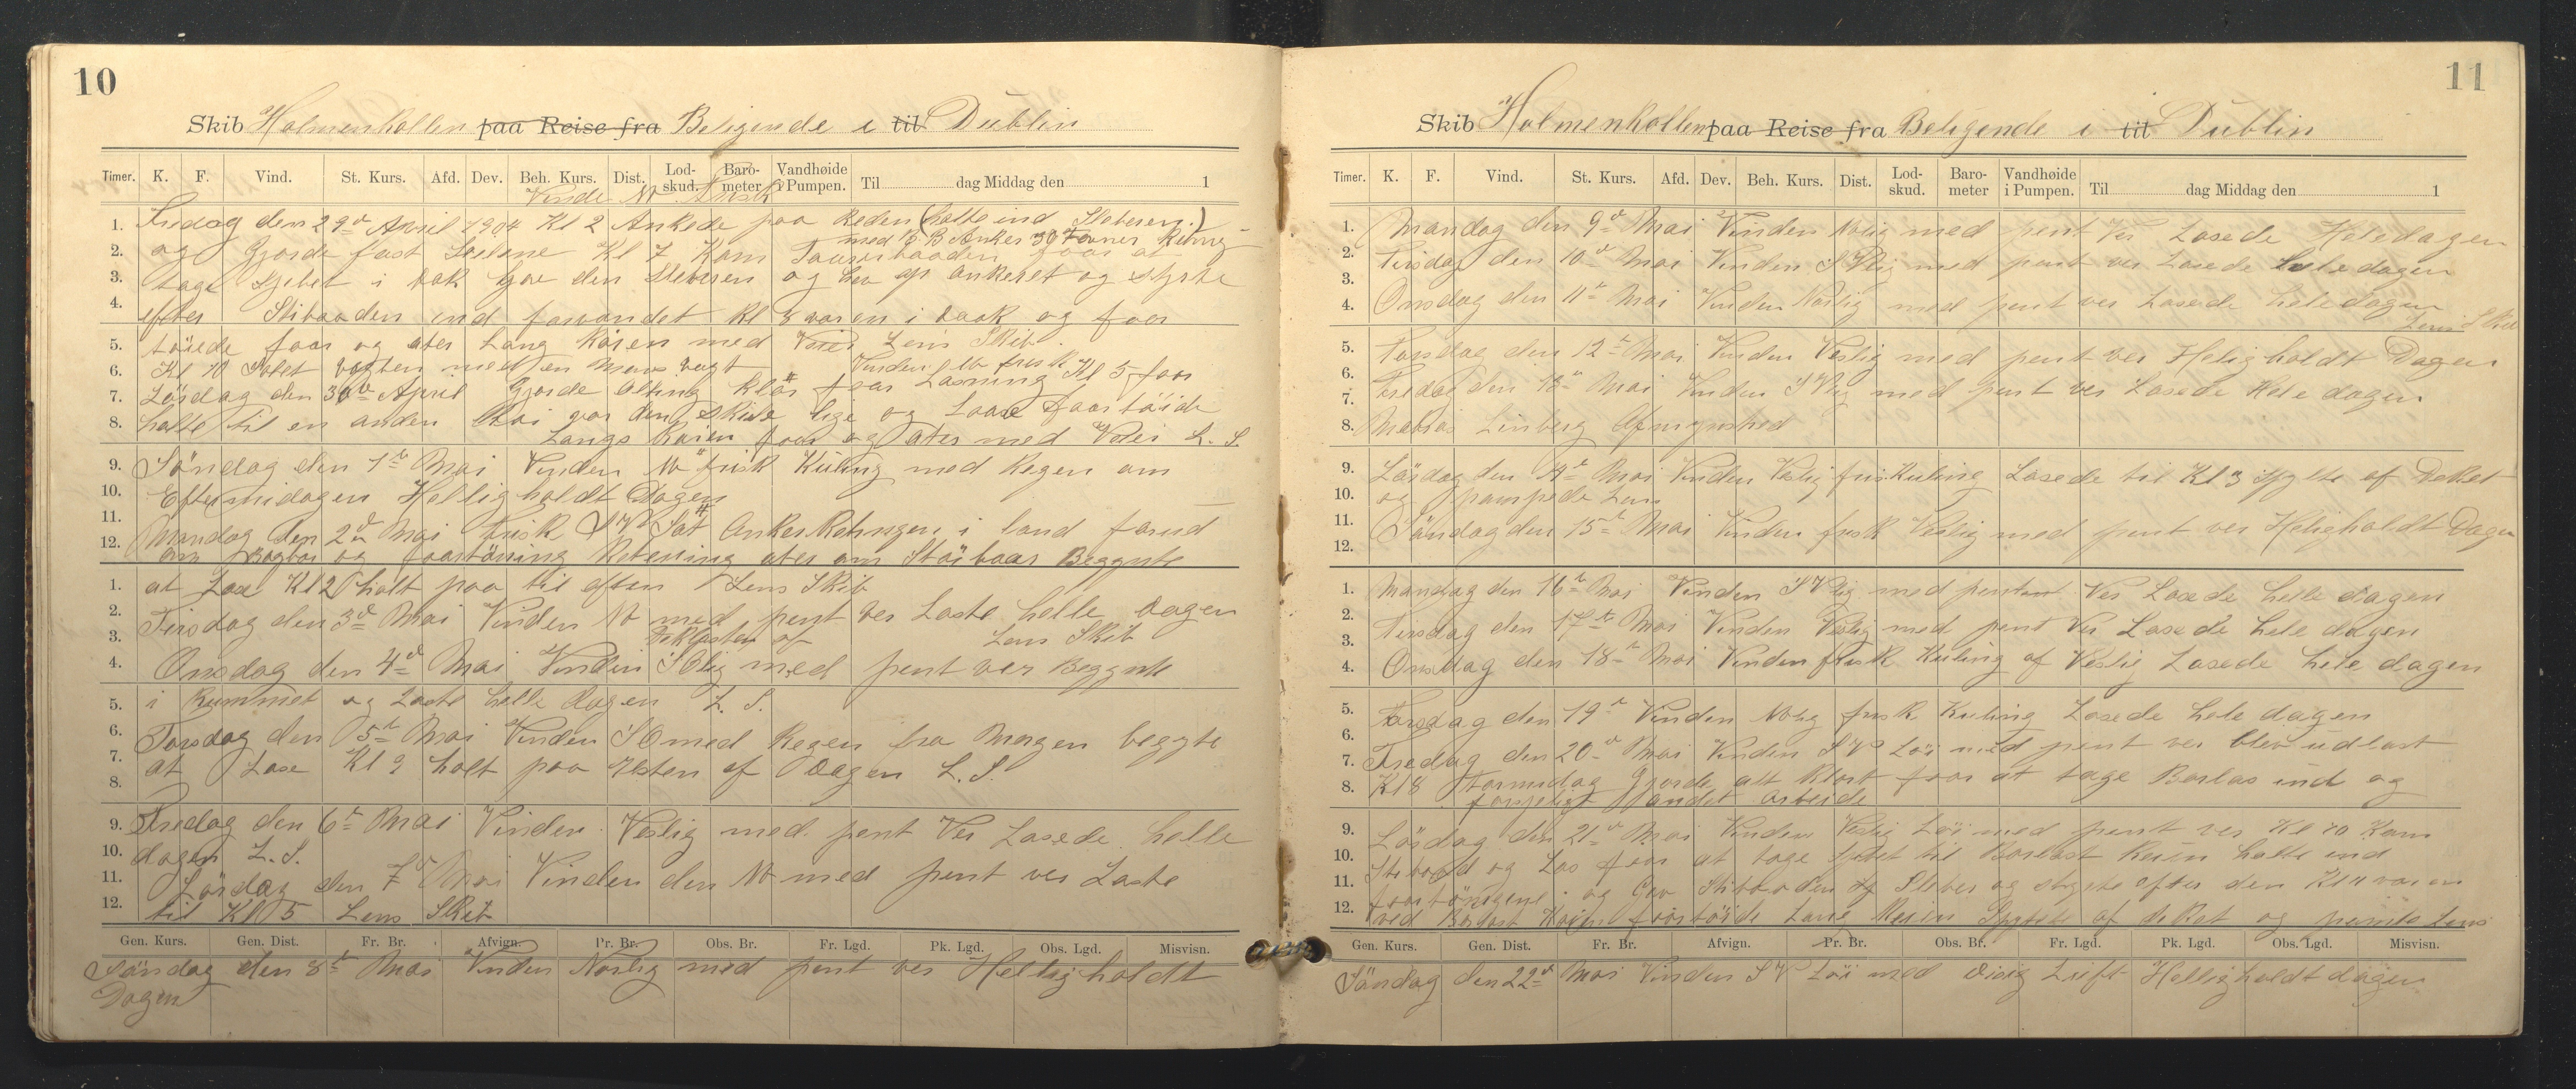 10
Skib Holmenkollen paa Reise fra Beligende i til Dublin
Timer. K. F. Vind. St. Kurs. Afd. Dev. Beh. Kurs. Dist. Lod-skud. Baro-meter Vandhøide i Pumpen. Til dag Middag den 1
Vinde NV frisk
1. Fredag den 29d April 1904 Kl 2 Ankede paa Reden (halte ind Slebesen.)
med B B Anker 30 Favner Ketng
2. og Gjorde fast Seilene Kl 7 Kom at
3. tage Sjibet i Dok gav den Slebesen og hev op ankeret og styrte
4. efter Slibaaden ind Kl 8 varen i Dock og foer
5. töiede foar og ater Lang Kaien med Lens Skib.
6. Kl 10 Solet vagten med en Mans vagt Vinden NV frisk
7. Lösdag den 30te April Gjorde Alting klar foar Lasning Kl 5 foar
8. halte til en anden Kai gav den Skive lige og Laae foartöide
Langs Kaien foar og ater med L. S.
9. Söndag den 1te Mai Vinden NV frisk Kuling med Regen om
10. Eftermidagen Helligholdt Dagen
11. Mandag den 2d Mai frisk SV Sat Ankerketingen i land forud
12. om Bagbor og foartöining Ketening ater om Stöibaar Beggnte
1. at Lose Kl 2 holt paa til often Lens Skib
2. Tirsdag den 3d Mai Vinden NV med pent Ver Laste helle Dagen
3. Deklasten af Lens Skib
4. Onsdag den 4d Mai Vinden SOlig med pent ver Beggnte
5. i Rummet og Laste helle Dagen L. S.
6. Torsdag den 5te Mai Vinden SO med Regen fra Morgen begyte
7. at Lose Kl 9 holt paa Resten af Dagen L. S.
8.
9. Fredag den 6te Mai Vinden Veslig med pent Ver Losede helle
10. dagen L. S.
11. Lördag den 7d Mai Vinden den NV med pent ver Laste
12. til Kl 5 Lens Skib
Gen. Kurs. Gen. Dist. Fr. Br. Afvign. Pr. Br. Obs. Br. Fr. Lgd. Pk. Lgd. Obs. Lgd. Misvisn.
Söndag den 8te Mai Vinden Norlig med pent ver Helligholdt
Dagen
11
Skib Holmenkollen paa Reise fra Beligende i til Dublin
Timer. K. F. Vind. St. Kurs. Afd. Dev. Beh. Kurs. Dist. Lod-skud. Baro-meter Vandhøide i Pumpen. Til dag Middag den 1
1. Mandag den 9d Mai Vinden Nolig med pent Ver Losede Heledagen
2. Tirsdag den 10d Mai Vinden SVlig med pent ver Losede hele dagen
3. Onsdag den 11te Mai Vinden Norlig med pent ver Losede hele dagen
4. Lens Skib
5. Torsdag den 12te Mai Vinden Veslig med pent ver Heligholdt Dagen
6.
7. Fredag den 13te Mai Vinden SVlig med pent ver Losede Hele dagen
8. Matros Linberg
9. Lösdag den 14de Mai Vinden Veslig frisk Kuling Losede til Kl 3 spylte af Deket
10. og pompede Lens
11. Söndag den 15te Mai Vinden frisk Veslig med pent ver Heligholdt Dagen
12.
1. Mandag den 16te Mai Vinden SVlig med pent Ver Losede helle dagen
2. Tirsdag den 17de Mai Vinden Veslig med pent Ver Losede hele dagen
3.
4. Onsdag den 18te Mai Vinden frisk Kuling af Veslig Losede hele dagen
5. Torsdag den 19te Vinden NOlig frisk Kuling Losede hele dagen
6.
7. Fredag den 20d Mai Vinden SV Löi med pent ver blev udlost
8. Kl 8 Formidag Gjorde alt Klart foar at tage Barlas ind og
forsjelig andet Arbeide
9. Lösdag den 21d Mai Vinden Veslig Löi med pent ver Kl 10 Kom
10. og Los foar at tage Sjibet til Barlast Keien halte ind
11. foartönigene og Gav Slibbaaden Sleber og styrte efter den Kl 11 varen
12. ved Barlast Kaien foartöide Lans Kaien Spylte af deket og pomte Lens
Gen. Kurs. Gen. Dist. Fr. Br. Afvign. Pr. Br. Obs. Br. Fr. Lgd. Pk. Lgd. Obs. Lgd. Misvisn.
Söndag den 22d Mai Vinden SV Löi med Disig Luft Helligholdt dagen